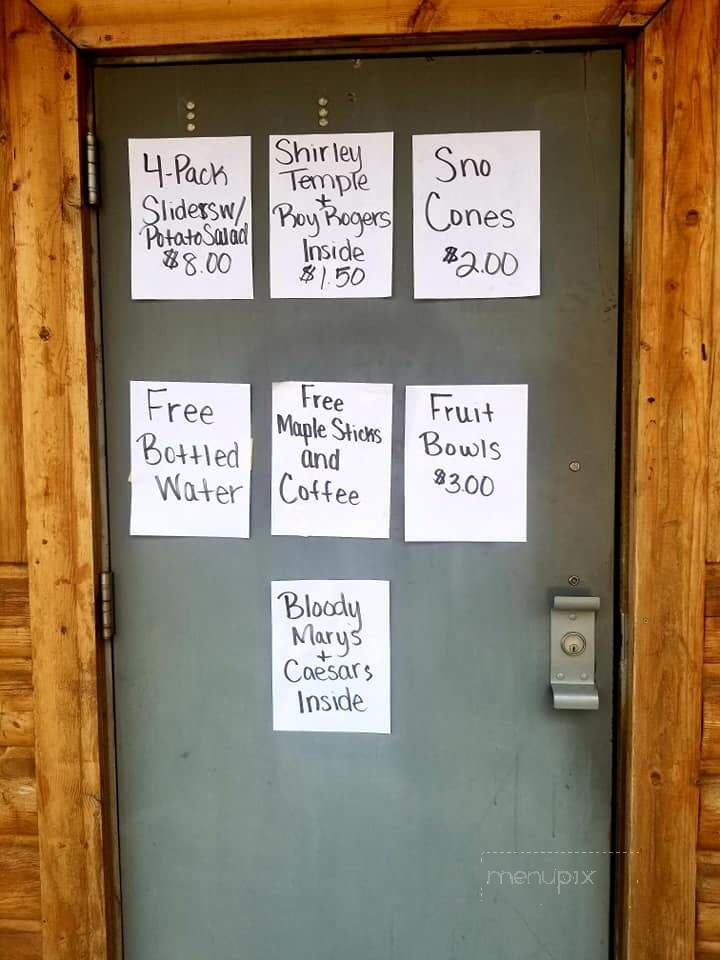 4-Pack
Sliders w/
Potato Salad
$8.00
Shirley
Temple
+
Roy Rogers
Inside
$1.50
Sno
Cones
$2.00
Free
Bottled
Water
Free
Maple Sticks
and
Coffee
Fruit
Bowls
$3.00
Bloody
Mary's
+
Caesars
Inside
menupix